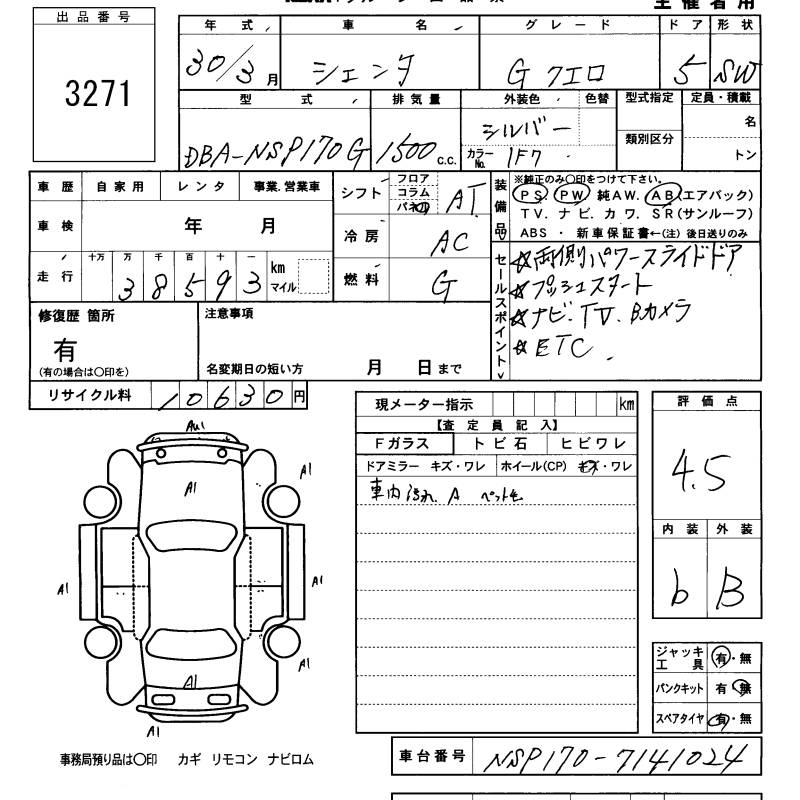 主 催 者 用
出 品 番 号
3271
年 式 車 名 グ レ ー ド ド ア 形 状
30/3月 シエンタ G クエロ 5 SW
型 式 排 気 量 外装色 色替 型式指定 定員・積載
DBA-NSP170G 1500 c.c. シルバー 類別区分 名
カラーNo. 1F7 トン
車 歴 自 家 用 レ ン タ 事業.営業車
車 検 年 月
走 行 十万 万 千 百 十 一 km マイル
3 8 5 9 3
シフト フロア コラム パネル AT
冷 房 AC
燃 料 G
装備品 ※純正のみ〇印をつけて下さい。
PS. PW 純AW. AB(エアバック)
TV. ナ ビ. カ ワ. SR(サンルーフ)
ABS ・ 新車保証書←(注) 後日送りのみ
セールスポイント ☆両側パワースライドドア
☆プッシュスタート
☆ナビ.TV.Bカメラ
☆ETC
修復歴 箇所
有
(有の場合は〇印を)
注意事項
名変期日の短い方 月 日 まで
リサイクル料 10630 円
現メーター指示 km
【査 定 員 記 入】
Fガラス ト ビ 石 ヒ ビ ワ レ
ドアミラー キズ・ワレ ホイール(CP) キズ・ワレ
車内汚れ A ペット毛
評 価 点
4.5
内 装 外 装
b B
AU1
A1
A1
A1
A1
A1
A1
A1
ジャッキ 工 具 有・無
パンクキット 有 無
スペアタイヤ 有・無
車台番号 NSP170-7141024
事務局預り品は〇印 カギ リモコン ナビロム